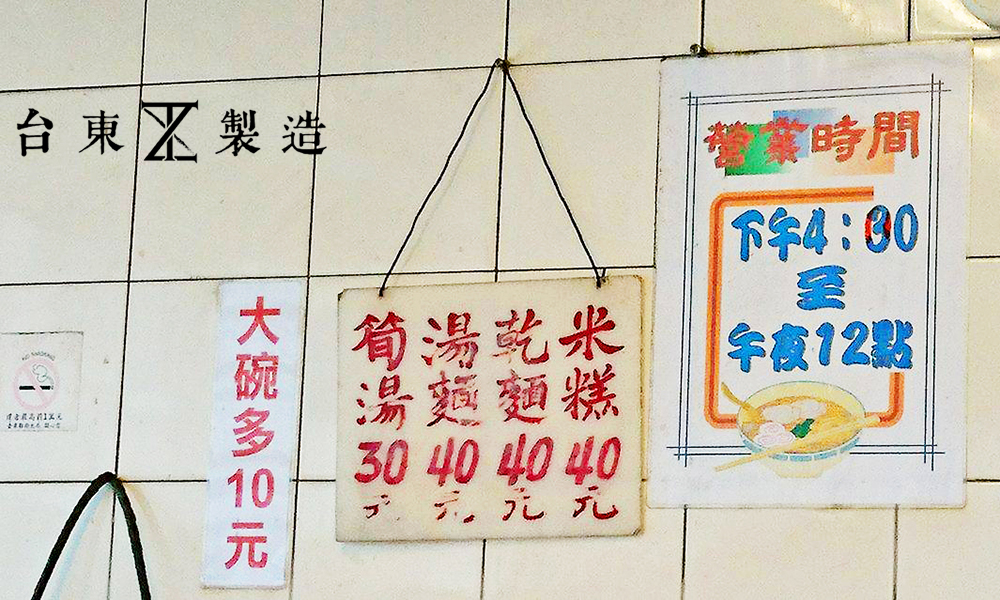 台東製造
營業時間
下午4：30
至
午夜12點
米糕40元
乾麵40元
湯麵40元
筍湯30元
大碗多10元
NO SMOKING